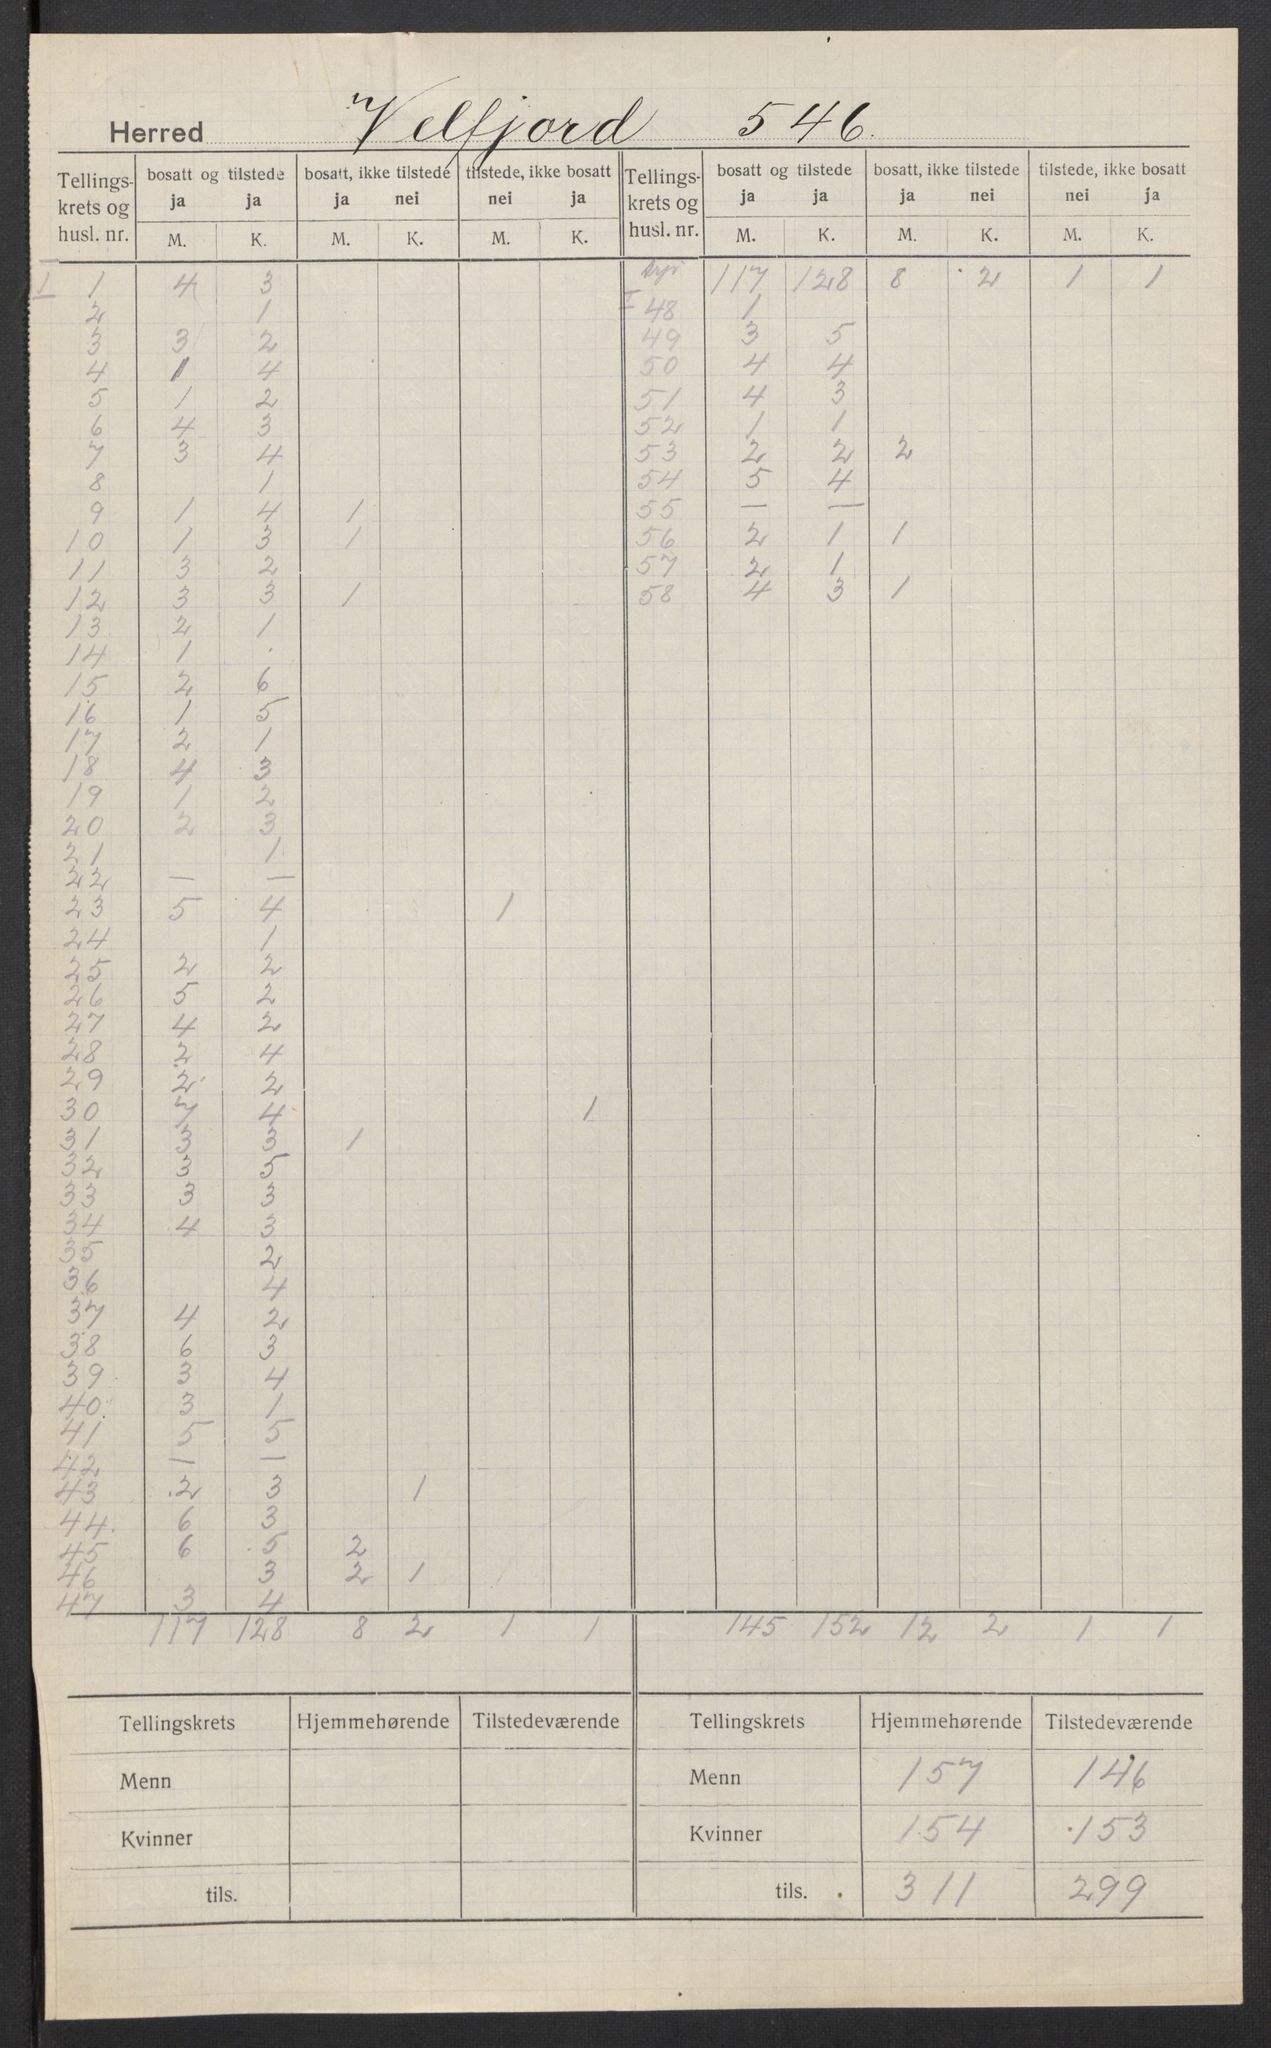 Herred Velfjord 546.
Tellings- krets og husl. nr. | bosatt og tilstede ja ja | bosatt, ikke tilstede ja nei | tilstede, ikke bosatt nei ja | Tellings- krets og husl. nr. | bosatt og tilstede ja ja | bosatt, ikke tilstede ja nei | tilstede, ikke bosatt nei ja
M. K. M. K. M. K. M. K. M. K. M. K.
I 1 4 3 117 128 8 2 1 1
2 1 I 48 1
3 3 2 49 3 5
4 1 4 50 4 4
5 1 2 51 4 3
6 4 3 52 1 1
7 3 4 53 2 2 2
8 1 54 5 4
9 1 4 1 55 — —
10 1 3 1 56 2 1 1
11 3 2 57 2 1
12 3 3 1 58 4 3 1
13 2 1
14 1 .
15 2 6
16 1 5
17 2 1
18 4 3
19 1 2
20 2 3
21 1
22 — —
23 5 4 1
24 1
25 2 2
26 5 2
27 4 2
28 2 4
29 2 2
30 7 4 1
31 3 3 1
32 3 5
33 3 3
34 4 3
35 2
36 4
37 4 2
38 6 3
39 3 4
40 3 1
41 5 5
42 — —
43 2 3 1
44 6 3
45 6 5 2
46 3 2 1
47 3 4
117 128 8 2 1 1 145 152 12 2 1 1
Tellingskrets Hjemmehørende Tilstedeværende Tellingskrets Hjemmehørende Tilstedeværende
Menn Menn 157 146
Kvinner Kvinner 154 153
tils. tils. 311 299